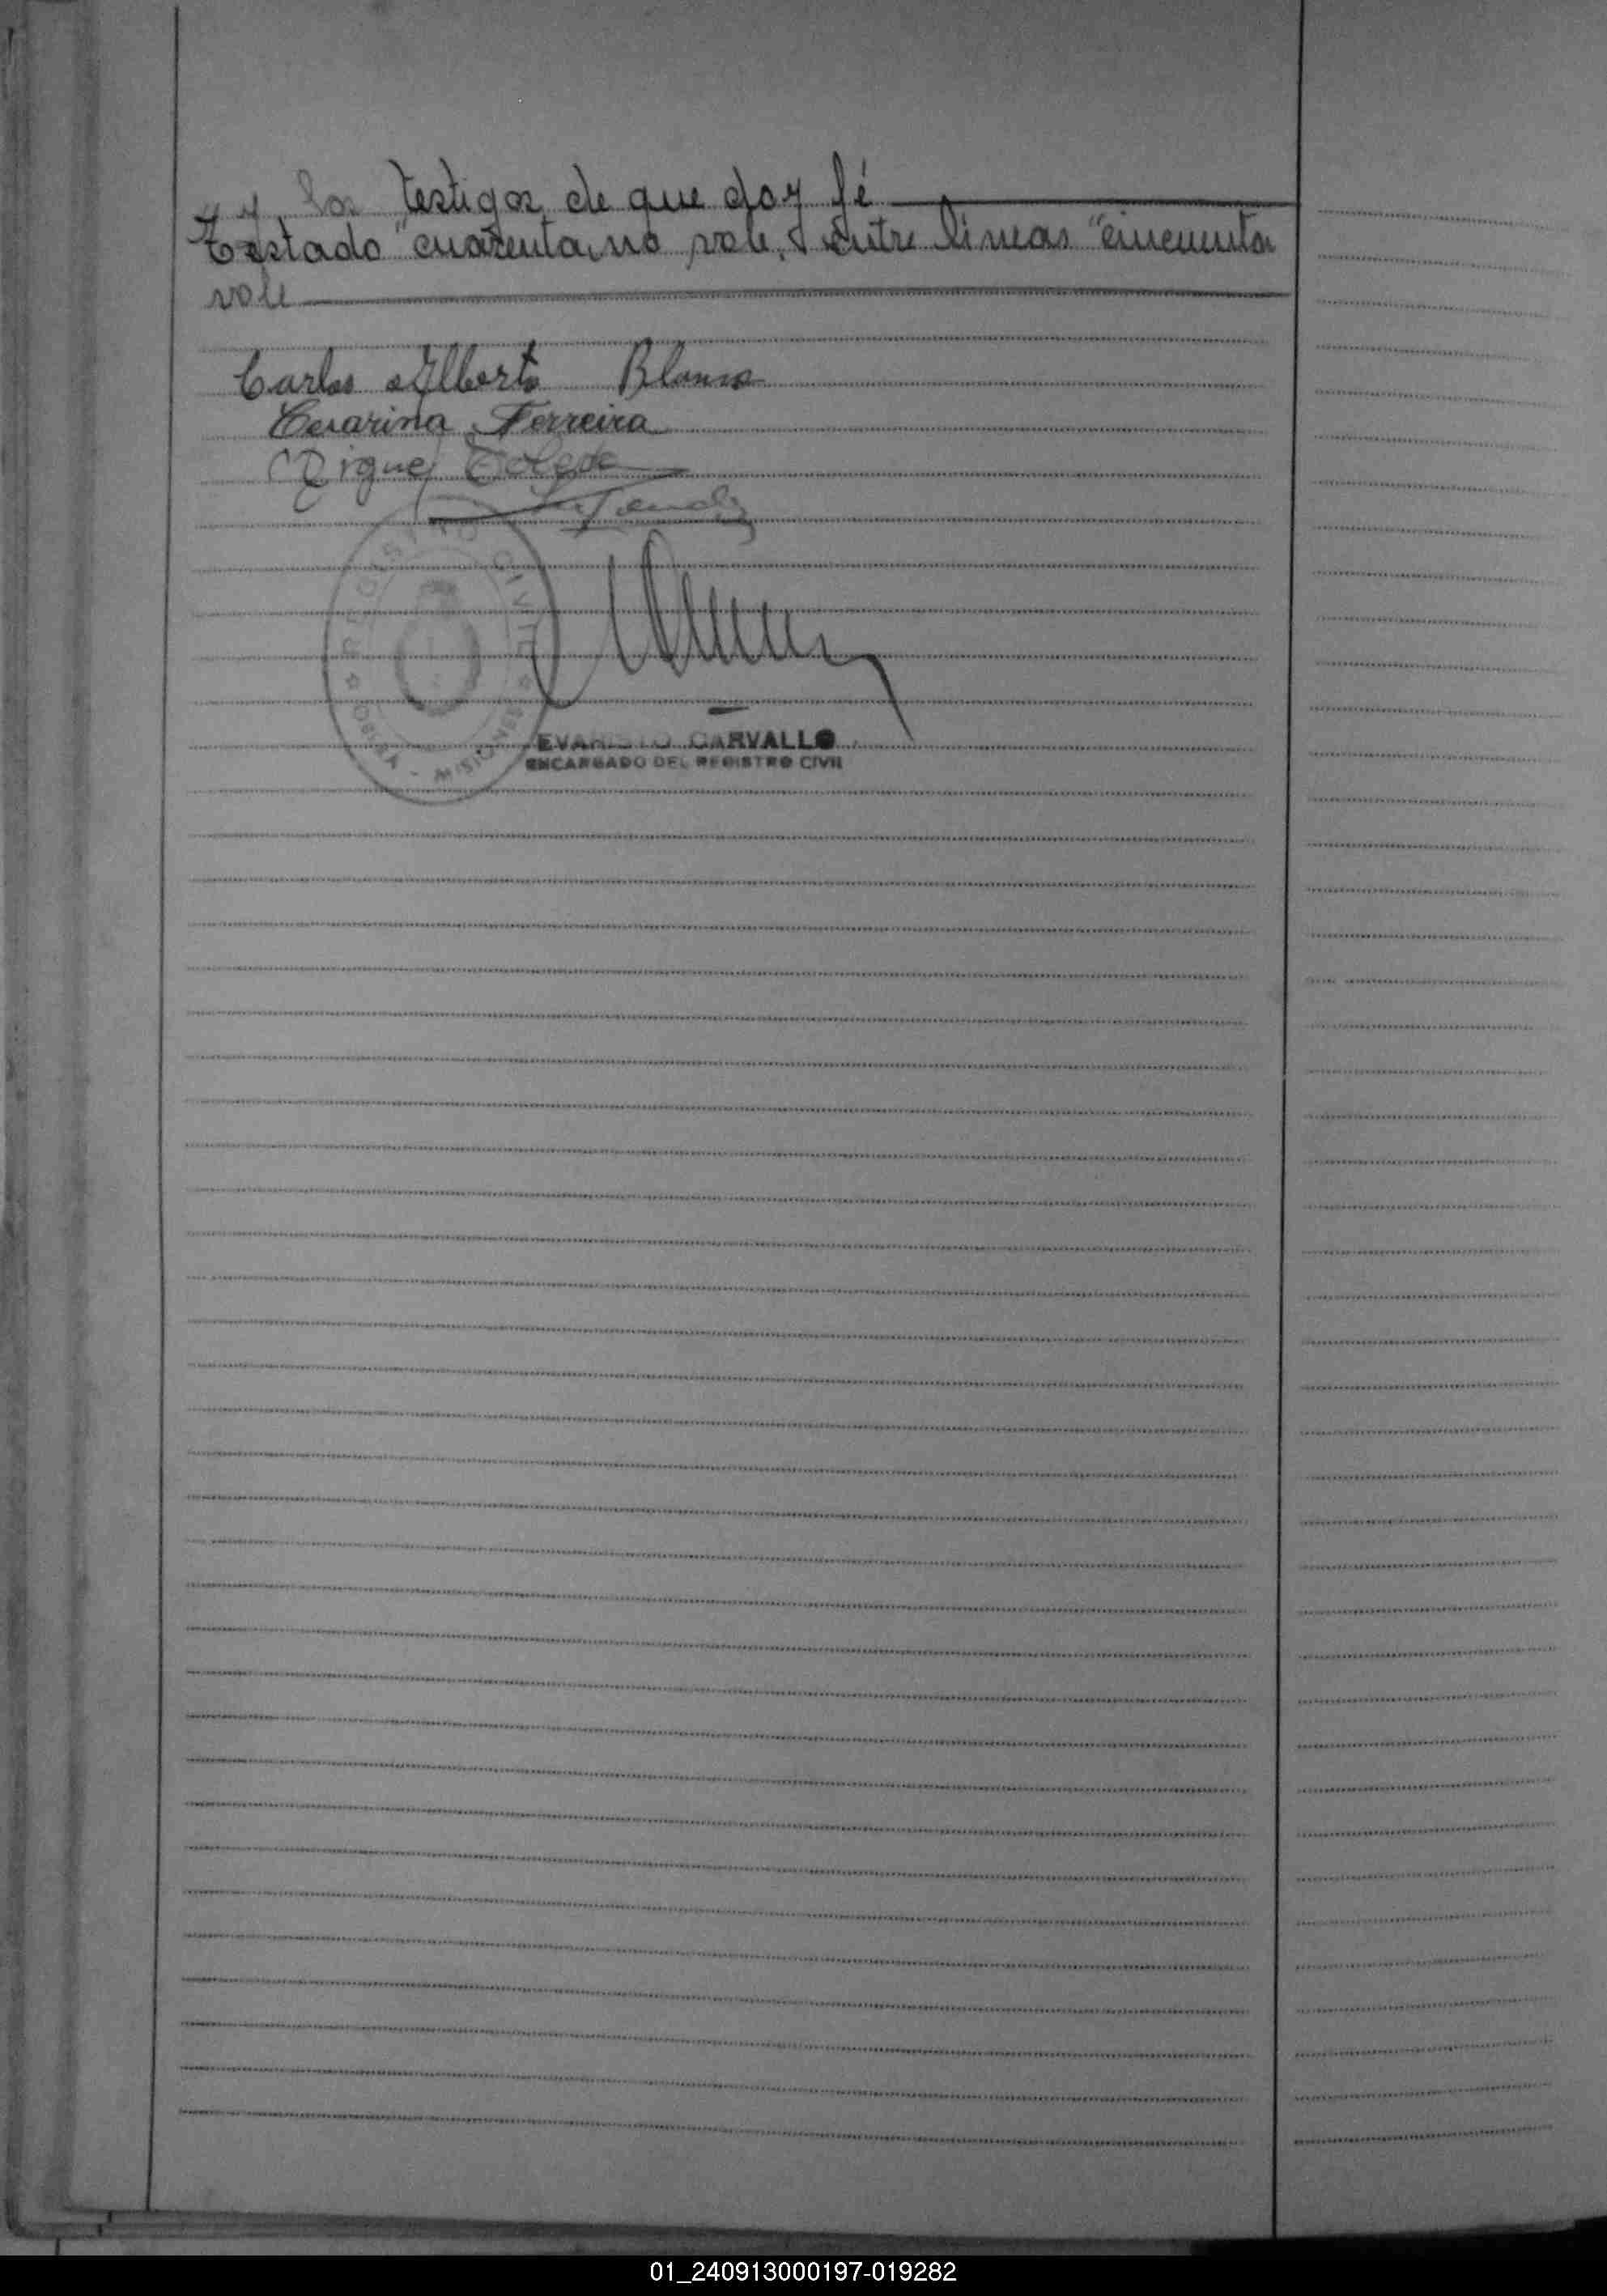 y los testigos de que doy fé
Testado "cuarenta, no vale. entre líneas "cincuenta
vale
Carlos Alberto Blanco
Cesarina Ferreira
Miguel Toledo
REGISTRO CIVIL
OBERA - MISIONES
EVARISTO CARVALLO
ENCARGADO DEL REGISTRO CIVIL
01_240913000197-019282